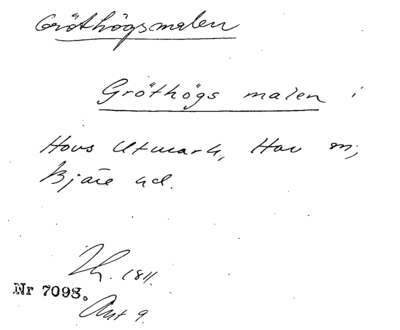 Gröthögsmalen
Gröthögs malen i
Hovs Utmark, Hov sn;
Bjäre hd.
Th. 1811.
Nr 7098.
Akt 9.